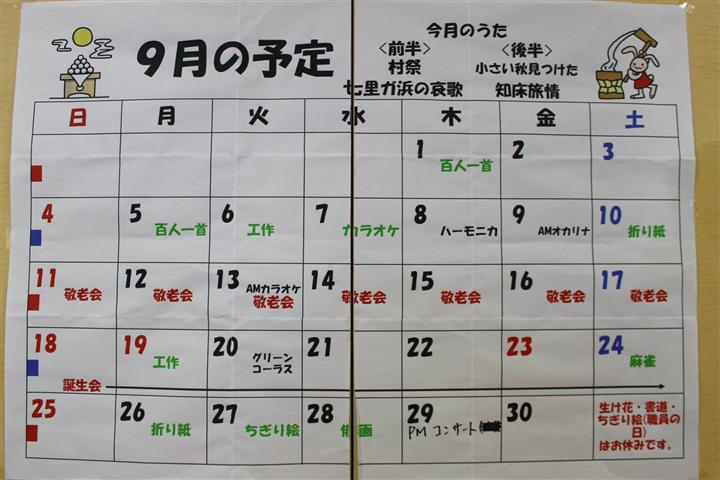 9月の予定
今月のうた
〈前半〉
村祭
七里ガ浜の哀歌
〈後半〉
小さい秋見つけた
知床旅情
日 月 火 水 木 金 土
1 百人一首
2
3
4
5 百人一首
6 工作
7 カラオケ
8 ハーモニカ
9 AMオカリナ
10 折り紙
11 敬老会
12 敬老会
13 AMカラオケ
敬老会
14 敬老会
15 敬老会
16 敬老会
17 敬老会
18
誕生会
19 工作
20 グリーン
コーラス
21
22
23
24 麻雀
25
26 折り紙
27 ちぎり絵
28 画
29
PM コンサート
30
生け花・書道・
ちぎり絵(職員の
日)
はお休みです。